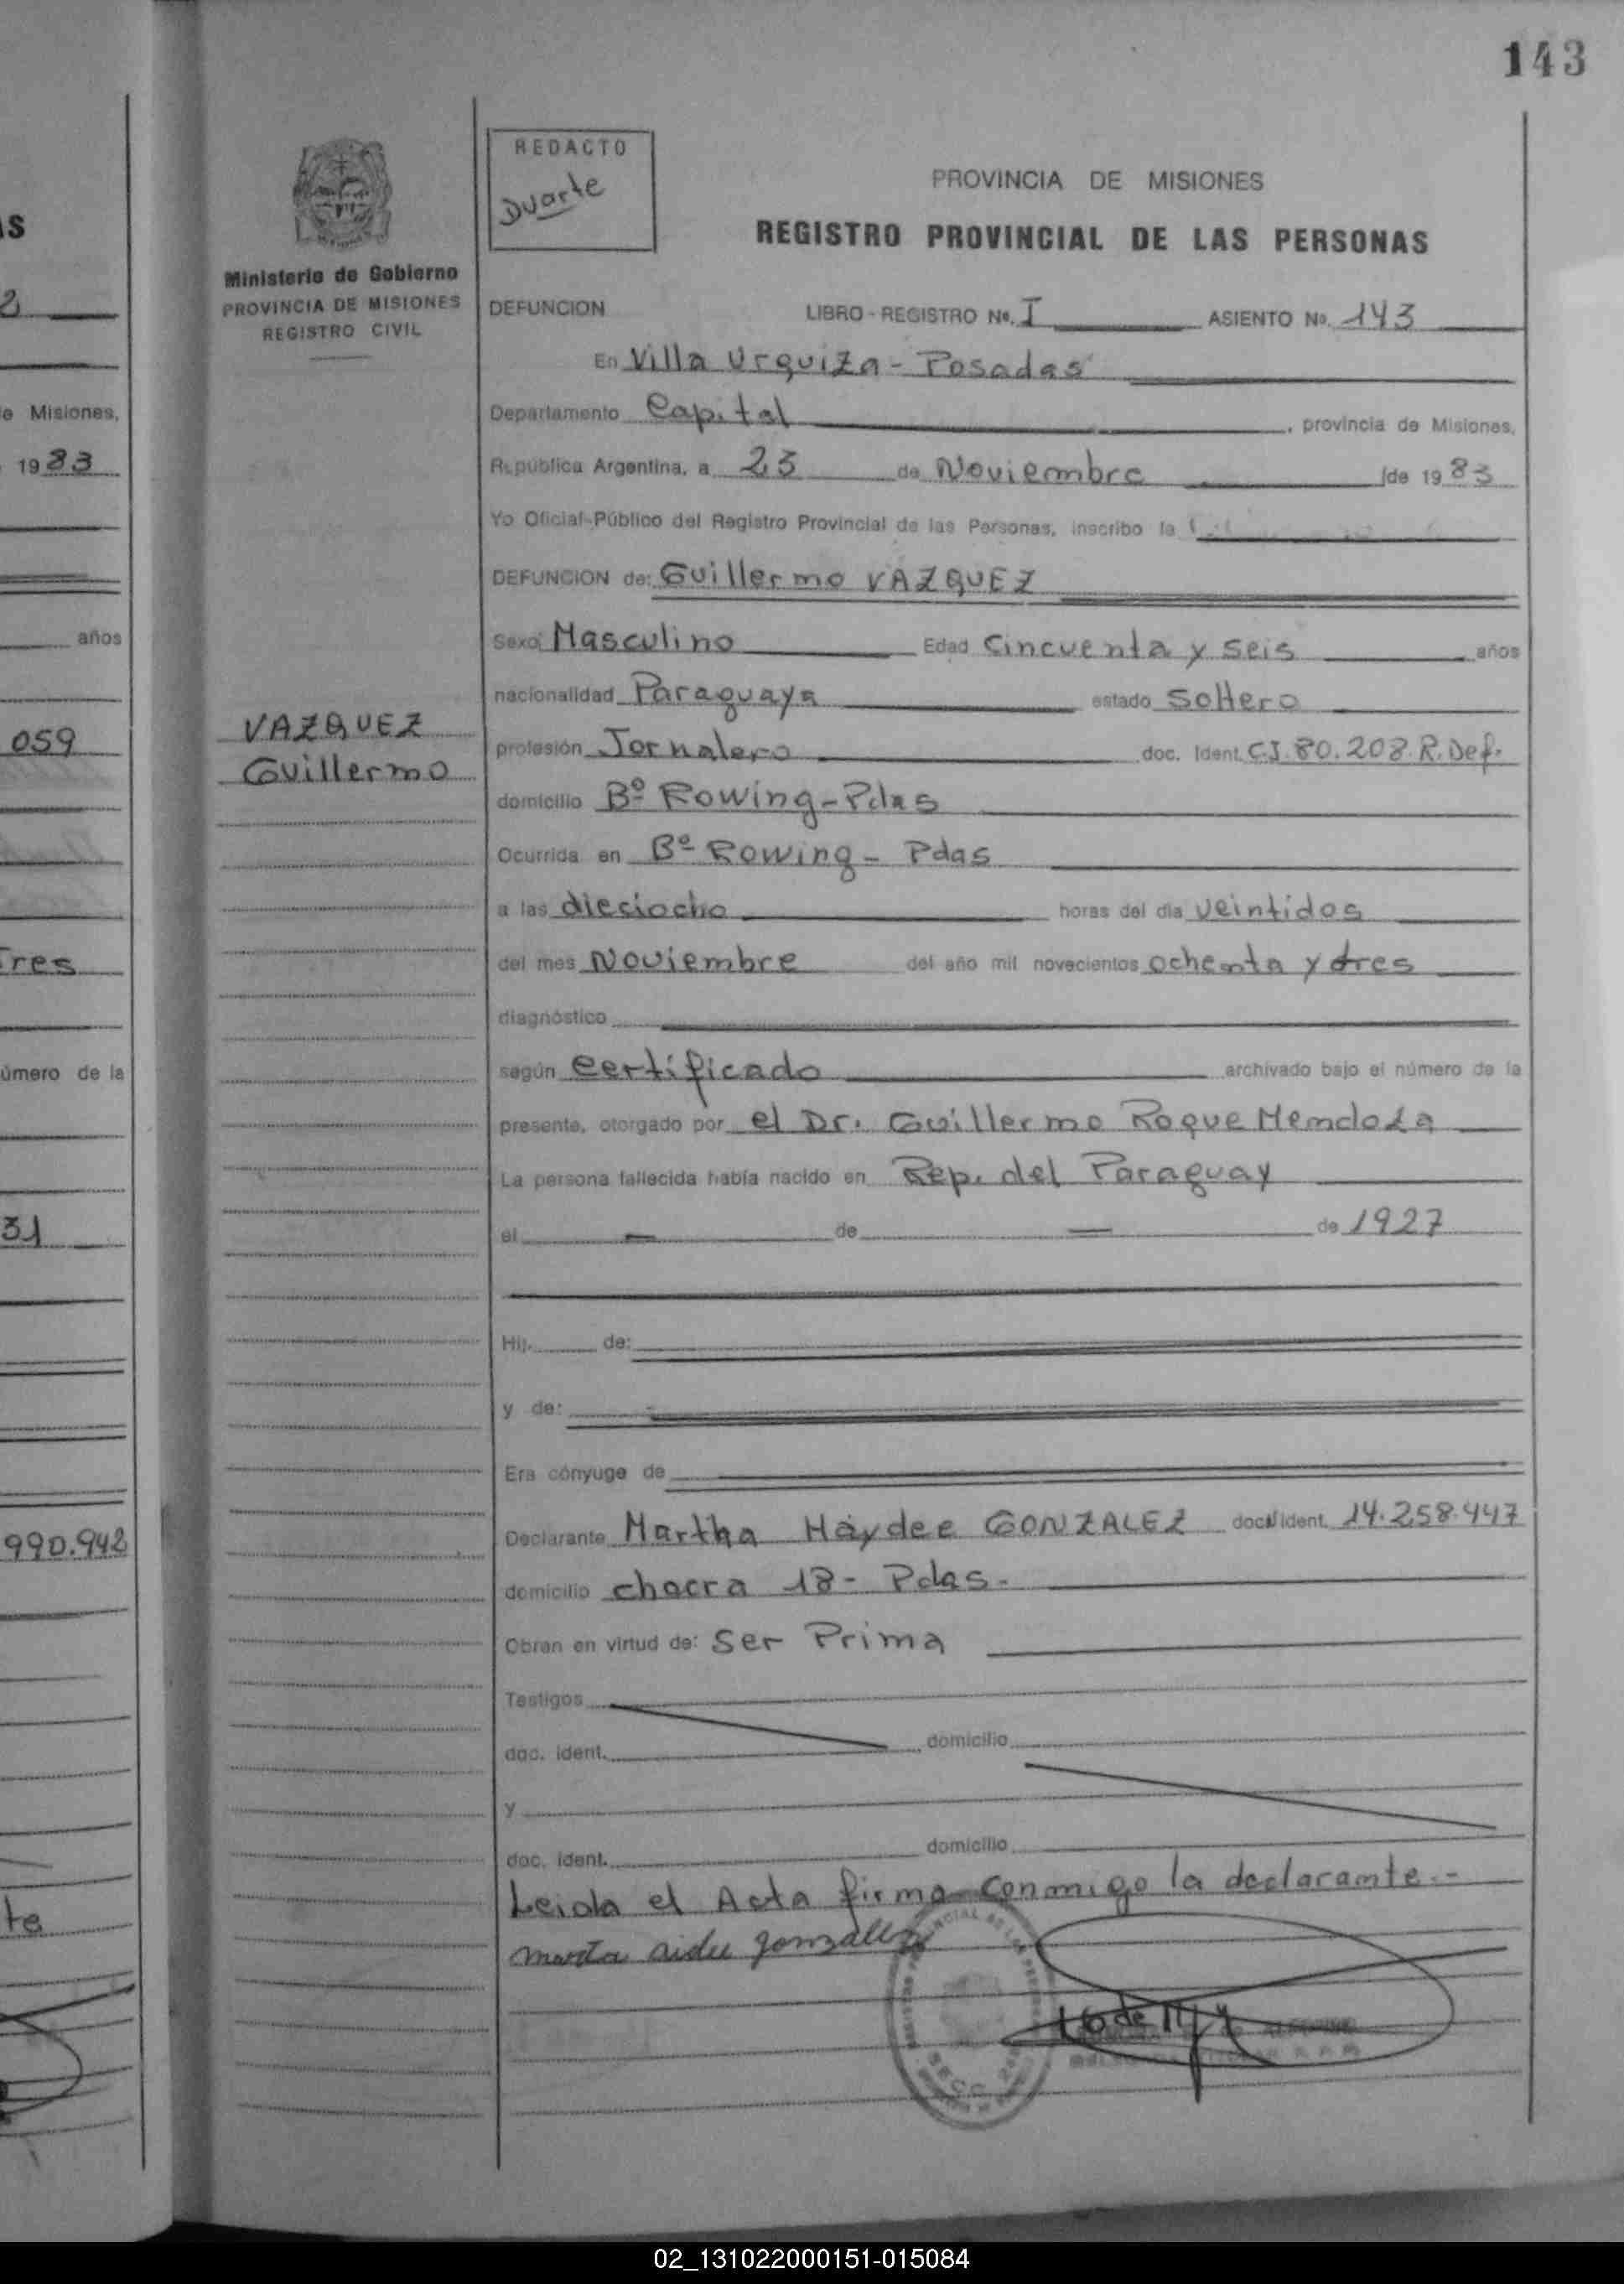 143
REDACTO
Duarte
PROVINCIA DE MISIONES
REGISTRO PROVINCIAL DE LAS PERSONAS
Ministerio de Gobierno
PROVINCIA DE MISIONES
REGISTRO CIVIL
DEFUNCION LIBRO - REGISTRO Nº. I ASIENTO Nº. 143
En Villa Urquiza - Posadas
Departamento Capital , provincia de Misiones,
República Argentina, a 23 de Noviembre de 1983
Yo Oficial Público del Registro Provincial de las Personas, inscribo la
DEFUNCION de: Guillermo VAZQUEZ
Sexo Masculino Edad Cincuenta y seis años
nacionalidad Paraguaya estado Soltero
VAZQUEZ
Guillermo
profesión Jornalero doc. Ident. C.I. 80.208. R. Def.
domicilio Bº Rowing - Pdas
Ocurrida en Bº Rowing - Pdas
a las dieciocho horas del día veintidos
del mes Noviembre del año mil novecientos ochenta y tres
diagnóstico
según certificado archivado bajo el número de la
presente, otorgado por el Dr. Guillermo Roque Mendoza
La persona fallecida había nacido en Rep. del Paraguay
el — de — de 1927
Hij. de:
y de:
Era cónyuge de
Declarante Martha Haydee GONZALEZ doc. ident. 14.258.447
domicilio chacra 18 - Pdas.
Obran en virtud de: Ser Prima
Testigos
doc. ident. domicilio
y
doc. ident. domicilio
Leida el Acta firma conmigo la declarante.-
marta aidee gonzalez
S
2
e Misiones,
1983
años
059
Tres
úmero de la
31
990.942
te
02_131022000151-015084